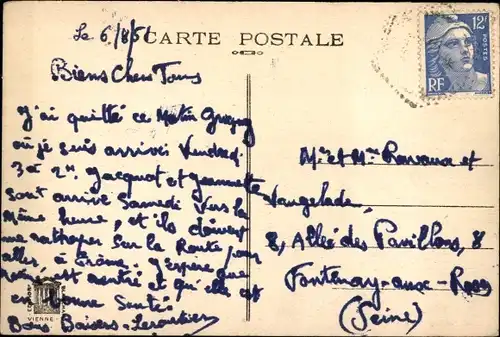 Le 6/8/51
CARTE POSTALE
12F
POSTES
RF
Biens Chers Tous
J'ai quitté ce Matin
où je suis arrivé Vendredi
à 2H. Jacquot et Jeannette
sont arrivé Samedi Vers la
même heure, et ils doivent
me rattraper sur la Route pour
aller, à J'espère que
est rentré et qu'elle est
en bonne Santé.
Bons Baisers
VIENNE
Mr et Mme Ravaux et
Vangelade,
8, Allée des Pavillons, 8
Fontenay-aux-Roses
(Seine)